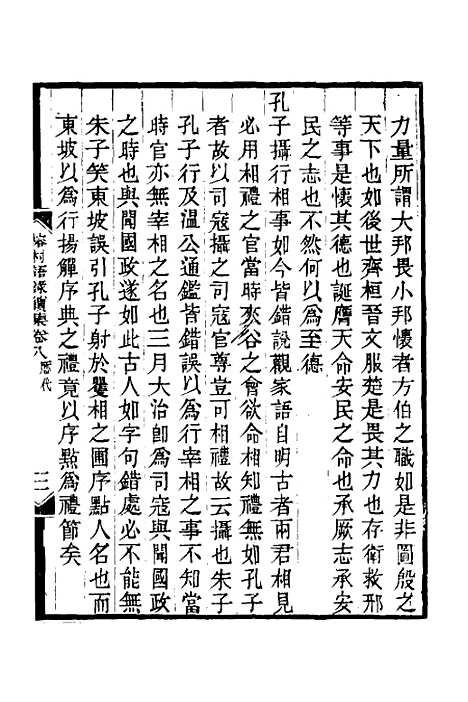 力量所謂大邦畏小邦懷者方伯之職如是非圖殷之
天下也如後世齊桓晉文服楚是畏其力也存衛救邢
等事是懷其德也誕膺天命安民之命也承厥志承安
民之志也不然何以爲至德
孔子攝行相事如今皆錯說觀家語自明古者兩君相見
必用相禮之官當時夾谷之會欲命相知禮無如孔子
者故以司寇攝之司寇官尊豈可相禮故云攝也朱子
孔子行及温公通鑑皆錯誤以爲行宰相之事不知當
時官亦無宰相之名也三月大治卽爲司寇與聞國政
之時也與聞國政遂如此古人如字句錯處必不能無
朱子笑東坡誤引孔子射於矍相之圃序點人名也而
東坡以爲行揚觶序典之禮竟以序點爲禮節矣
榕村語錄續集卷八歷代